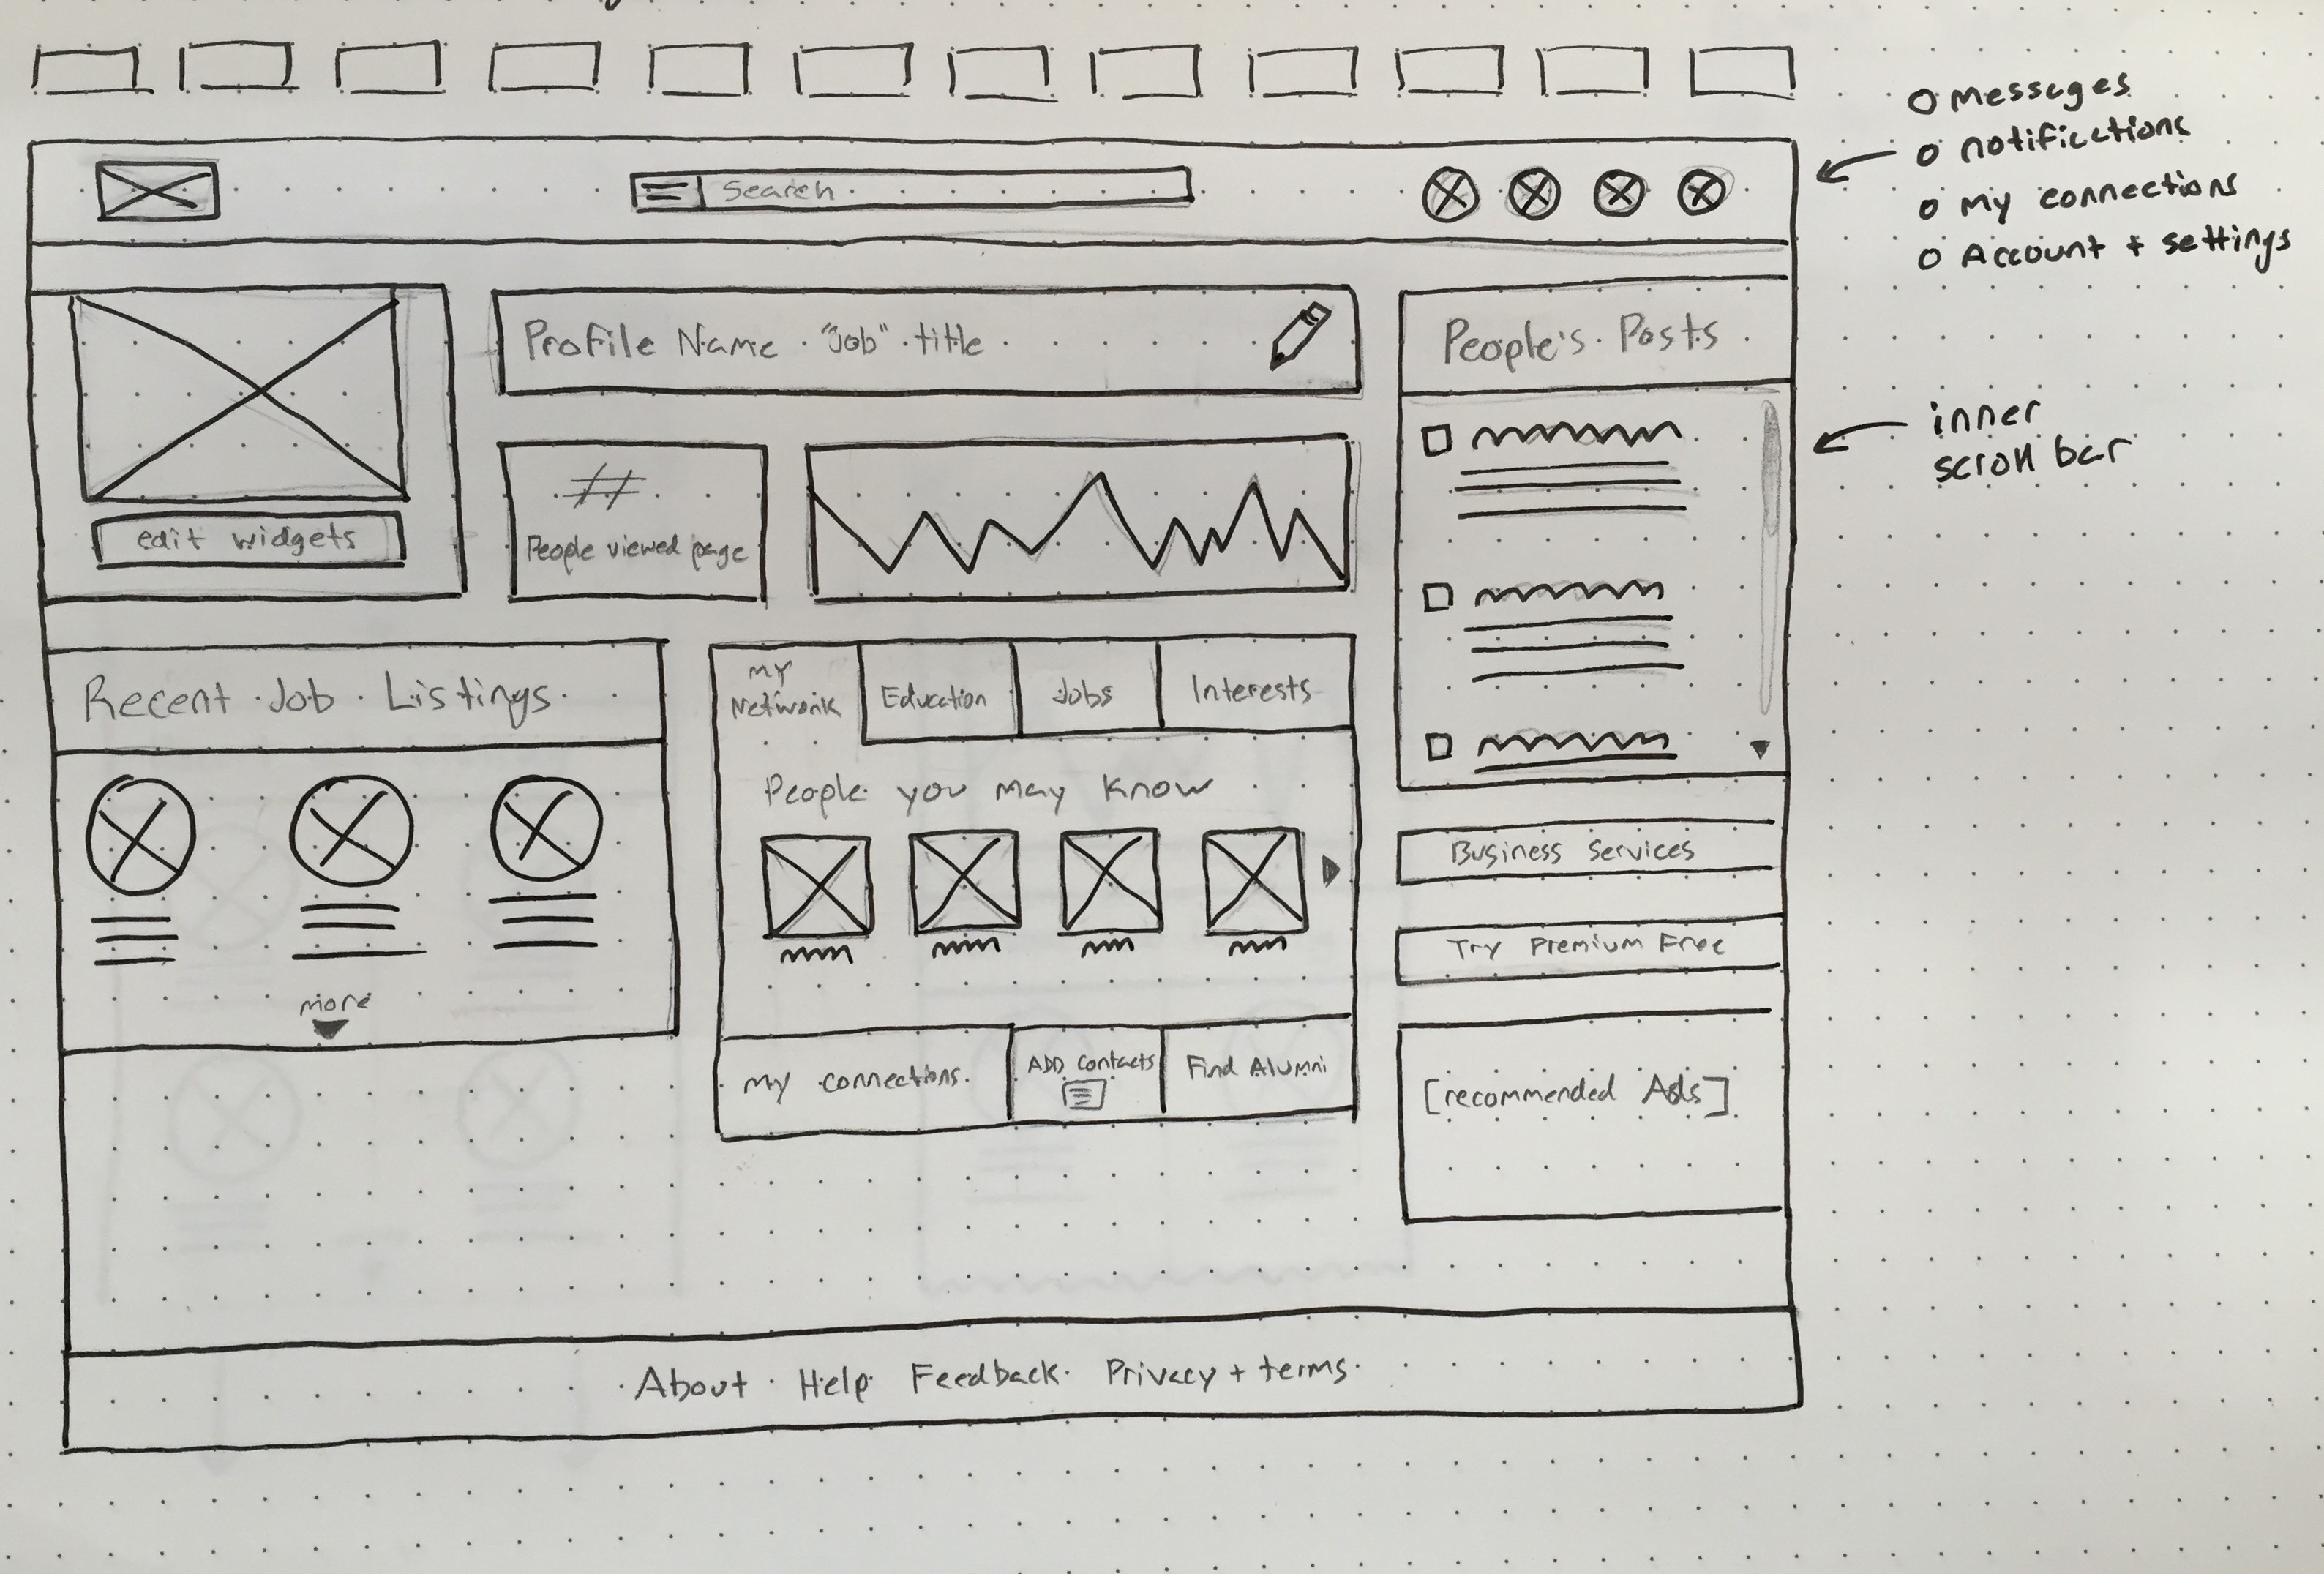 Search
o messages
o notifications
o my connections
o Account + settings
Profile Name "Job" title
People's Posts
inner
scroll bar
edit widgets
#
People viewed page
Recent Job Listings
my
Network
Education
Jobs
Interests
People you may know
more
my connections
ADD contacts
Find Alumni
Business Services
Try Premium Free
[recommended Ads]
About Help Feedback Privacy + terms